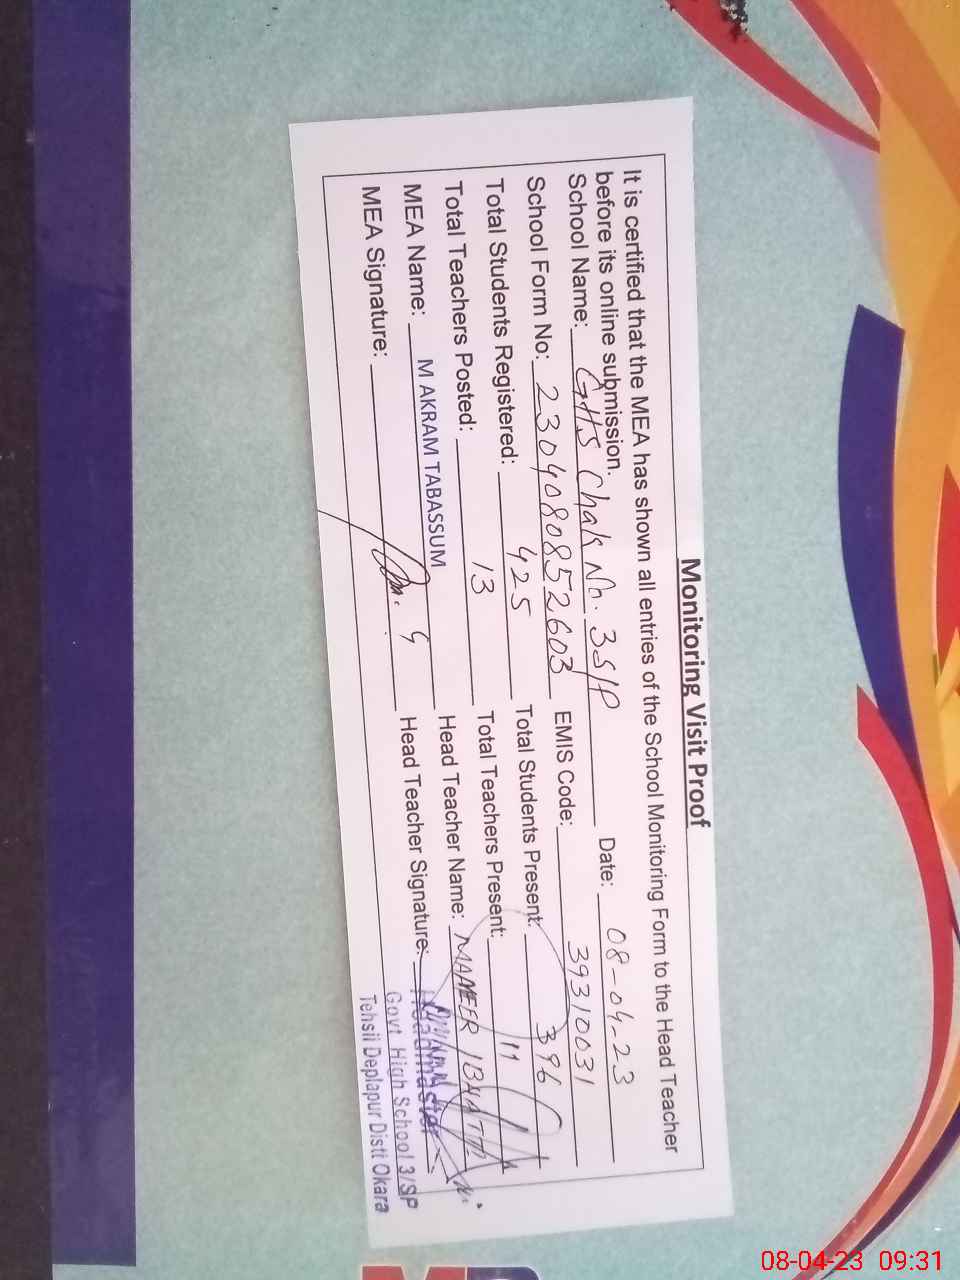 Monitoring Visit Proof
It is certified that the MEA has shown all entries of the School Monitoring Form to the Head Teacher
before its online submission.
School Name: GHS Chak No. 3S/P Date: 08-04-23
School Form No: 2304080852603 EMIS Code: 39310031
Total Students Registered: 425 Total Students Present: 396
Total Teachers Posted: 13 Total Teachers Present: 11
MEA Name: M AKRAM TABASSUM Head Teacher Name:
MEA Signature: Head Teacher Signature:
Headmaster
Govt. High School 3/SP
Tehsil Deplapur Distt Okara
08-04-23 09:31